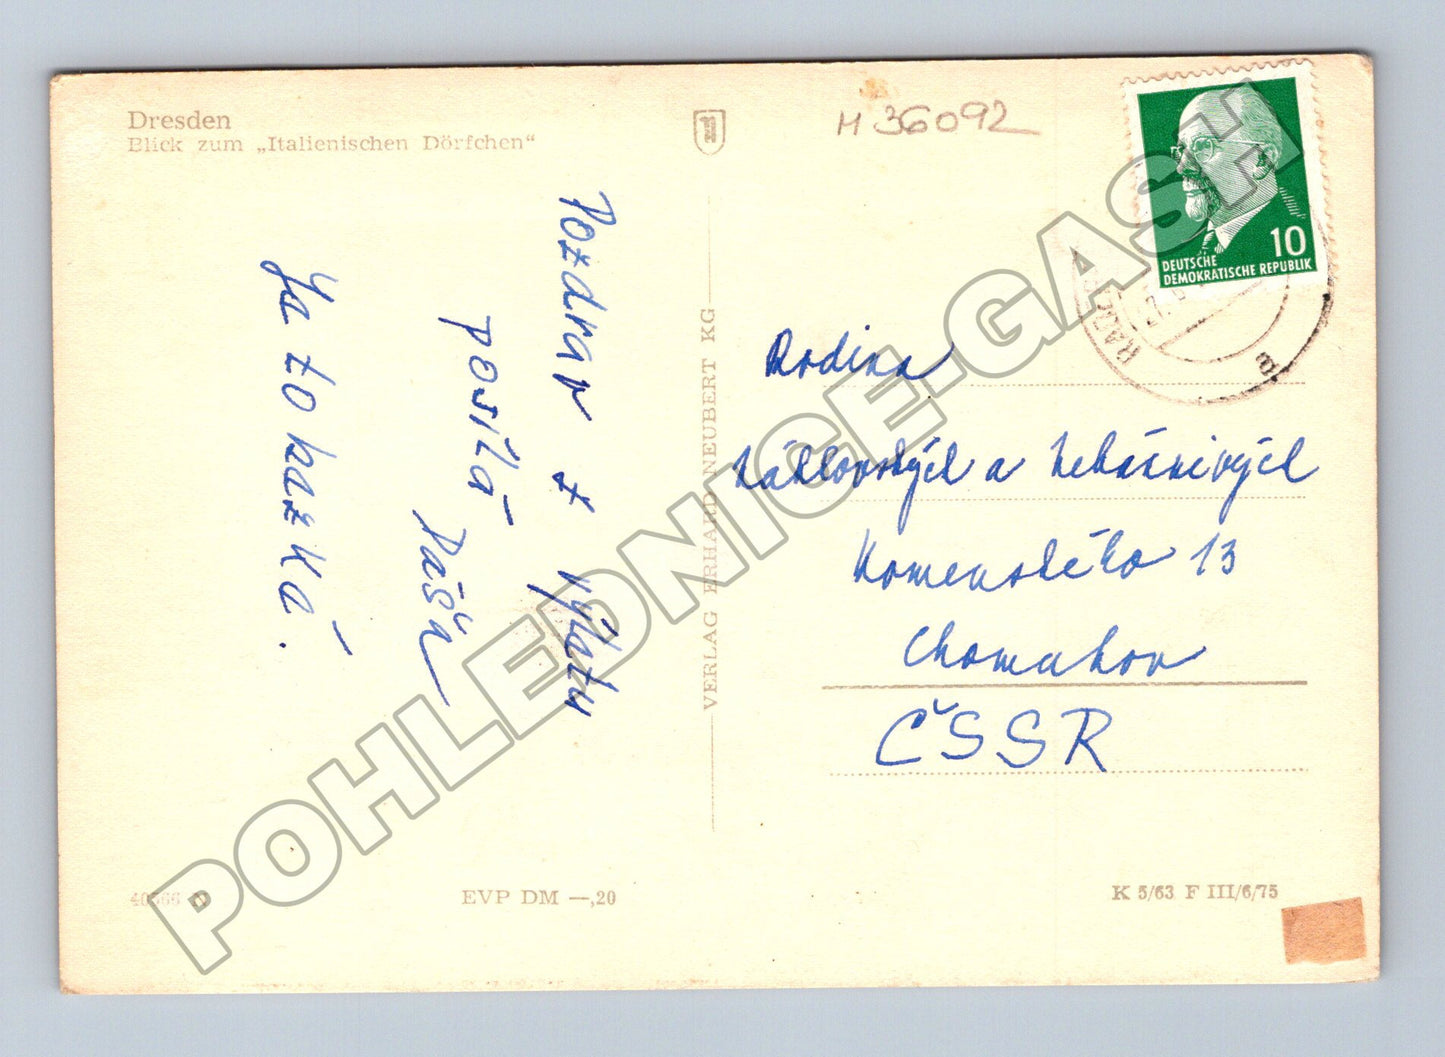 Dresden
Blick zum „Italienischen Dörfchen“
M 36092
10
DEUTSCHE
DEMOKRATISCHE REPUBLIK
Pozdrav z výletu
posílá
Dáša
Ja to kazká.
VERLAG ERHARD NEUBERT KG
Rodina
a
Komenského 13
Chomutov
ČSSR
40566 N
EVP DM —,20
K 5/63 F III/6/75
POHLEDNICE-GASH